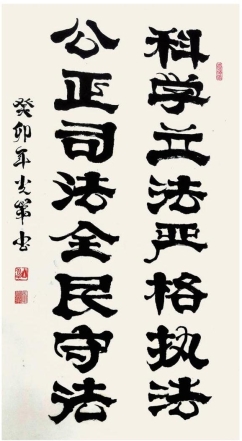 科学立法严格执法
公正司法全民守法
癸卯年光军书